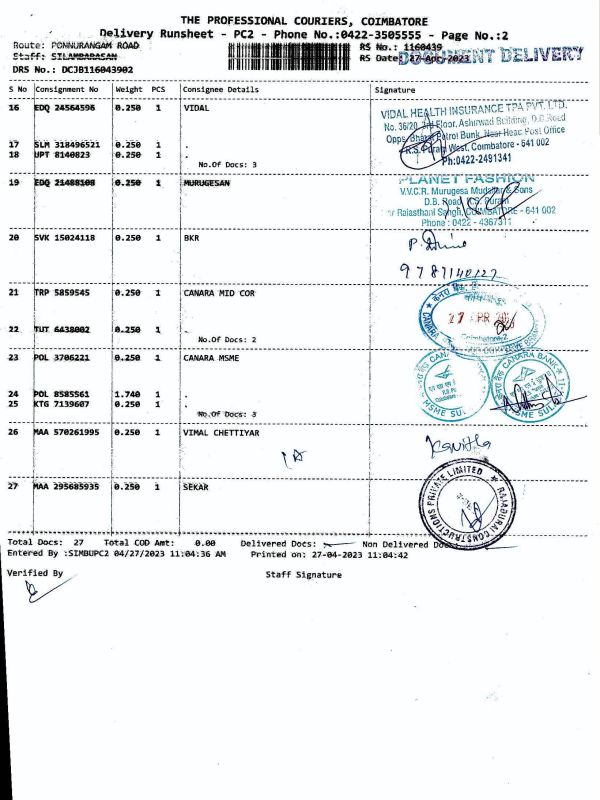 THE PROFESSIONAL COURIERS, COIMBATORE
Delivery Runsheet - PC2 - Phone No.:0422-3505555 - Page No.:2
Route: PONNURANGAM ROAD RS No.: 1160439
Staff: SILAMBARASAN RS Date: 27-Apr-2023 DOCUMENT DELIVERY
DRS No.: DCJB116043902
S No Consignment No Weight PCS Consignee Details Signature
16 EDQ 24564596 0.250 1 VIDAL
VIDAL HEALTH INSURANCE TPA PVT. LTD.
No. 36/20, 3rd Floor, Ashirwad Building, D.B.Road
Opps. Bharat Petrol Bunk, Near Head Post Office
R.S. Puram West, Coimbatore - 641 002
Ph:0422-2491341
17 SLM 318496521 0.250 1 .
18 UPT 8140823 0.250 1 .
No.Of Docs: 3
19 EDQ 21488108 0.250 1 MURUGESAN
PLANET FASHION
V.V.C.R. Murugesa Mudaliar & Sons
D.B. Road, R.S. Puram
Rajasthani Sangh, COIMBATORE - 641 002
Phone : 0422 - 4367311
20 SVK 15024118 0.250 1 BKR
P.
9787140127
21 TRP 5859545 0.250 1 CANARA MID COR
27 APR
Coimbatore-2
22 TUT 6438002 0.250 1 .
No.Of Docs: 2
23 POL 3706221 0.250 1 CANARA MSME
CANARA BANK
MSME SULABH
24 POL 8585561 1.740 1 .
25 KTG 7139607 0.250 1 .
No.Of Docs: 3
26 MAA 570261995 0.250 1 VIMAL CHETTIYAR
Kavitha
27 MAA 295685935 0.250 1 SEKAR
CONSTRUCTIONS PRIVATE LIMITED
Total Docs: 27 Total COD Amt: 0.00 Delivered Docs: Non Delivered Docs:
Entered By :SIMBUPC2 04/27/2023 11:04:36 AM Printed on: 27-04-2023 11:04:42
Verified By Staff Signature